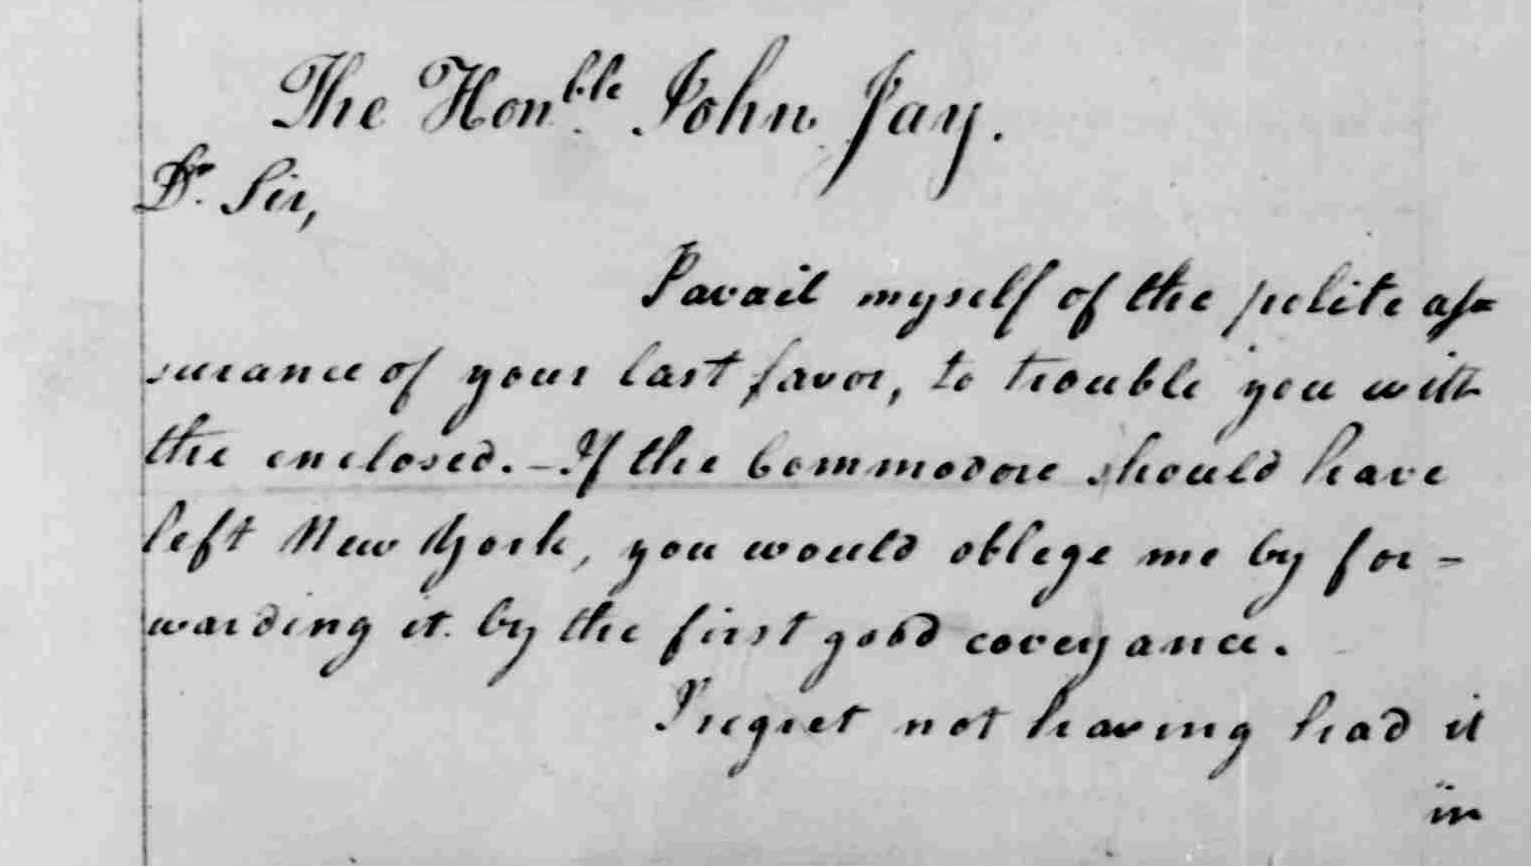 The Hon.ble John Jay.
Dr. Sir,
I avail myself of the polite as=
surance of your last favor, to trouble you with
the enclosed. – If the Commodore should have
left New York, you would oblege me by for -
warding it by the first good coveyance.
I regret not having had it
in